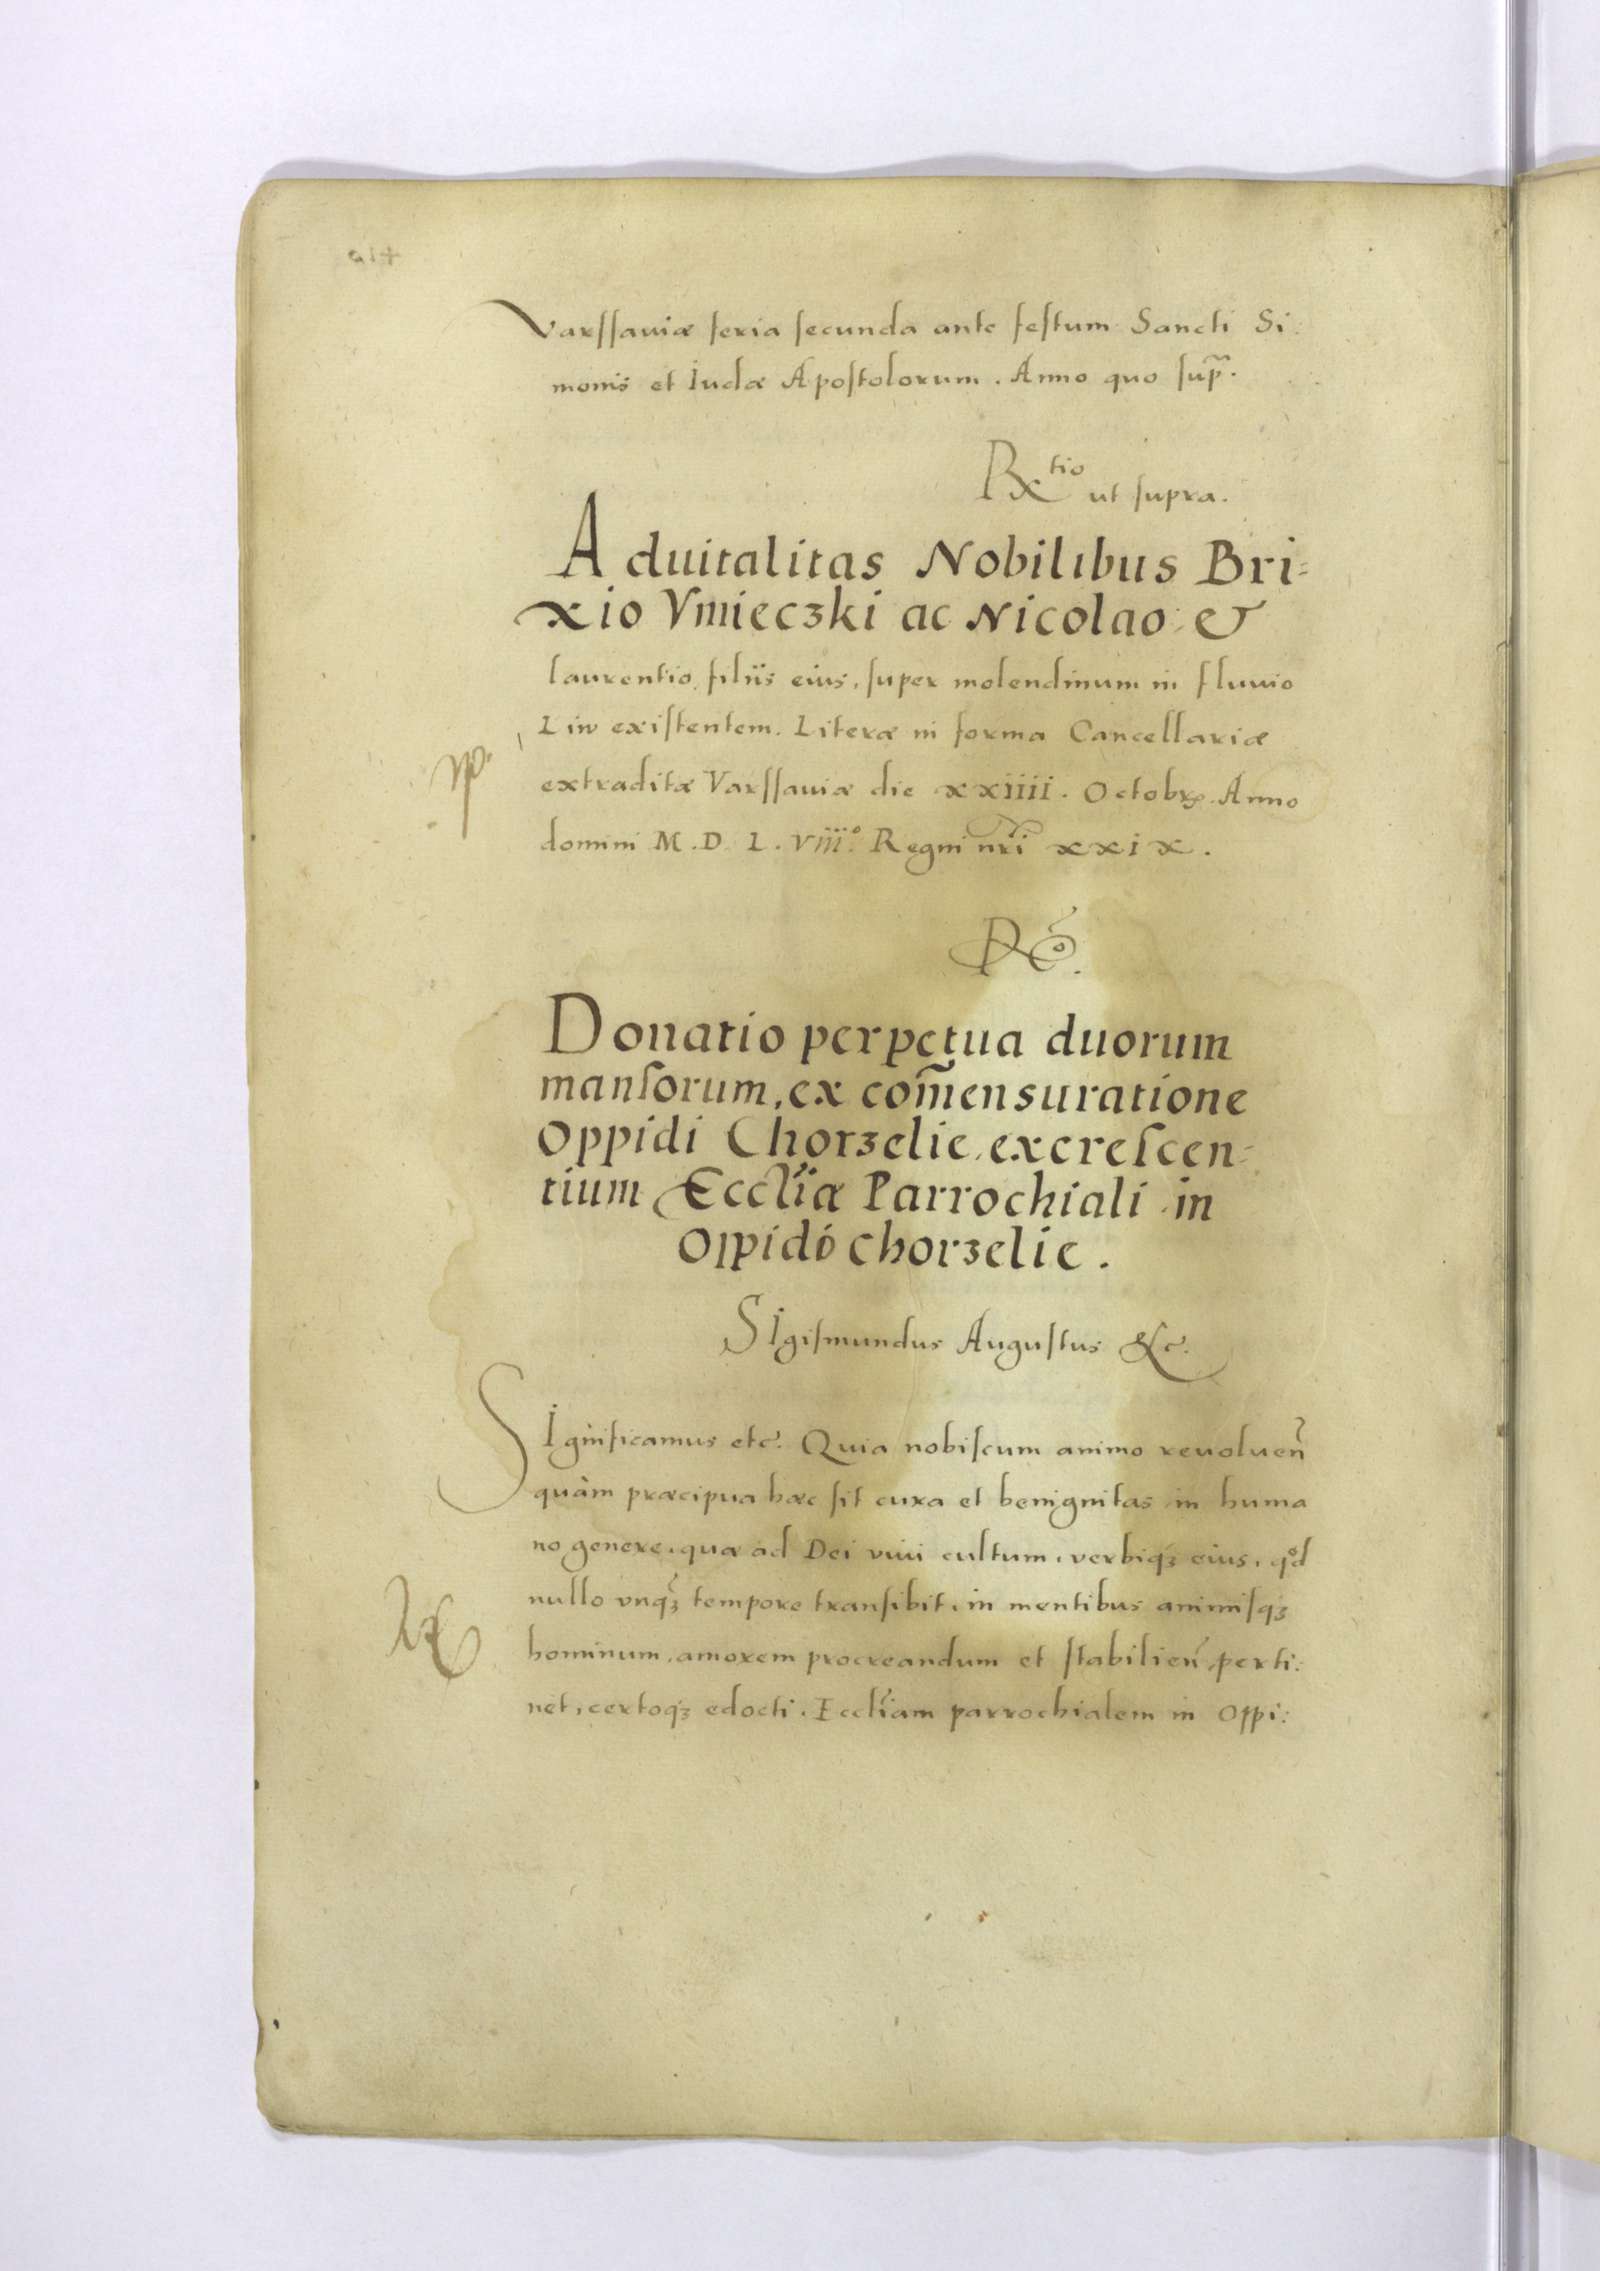 Varssauiæ feria secunda ante festum Sancti Si:
monis et Iudæ Apostolorum. Anno quo sup̃.
Rx tio ut supra.
Aduitalitas Nobilibus Bri=
xio Vmieczki ac Nicolao &
laurentio filiis eius, super molendinum in fluuio
Liw existentem. Literæ in forma Cancellariæ
extraditæ Varssauiæ die xxiiii. Octobr. Anno
domini M.D.L.viii.° Regni nr̃i xxix.
Donatio perpetua duorum
mansorum, ex com̃ensuratione
Oppidi Chorzelie, excrescen=
tium Eccl̃iæ Parrochiali in
Oppido Chorzelie.
SIgismundus Augustus &c.
SIgnificamus etc. Quia nobiscum animo reuoluen̄
quàm præcipua hæc sit cura et benignitas in huma
no genere, quæ ad Dei viui cultum, verbiqꝫ eius, qod
nullo vnqꝫ tempore transibit, in mentibus animisqꝫ
hominum, amorem procreandum et stabilien̄ perti:
net, certoqꝫ edocti, Eccl̃iam parrochialem in Oppi: